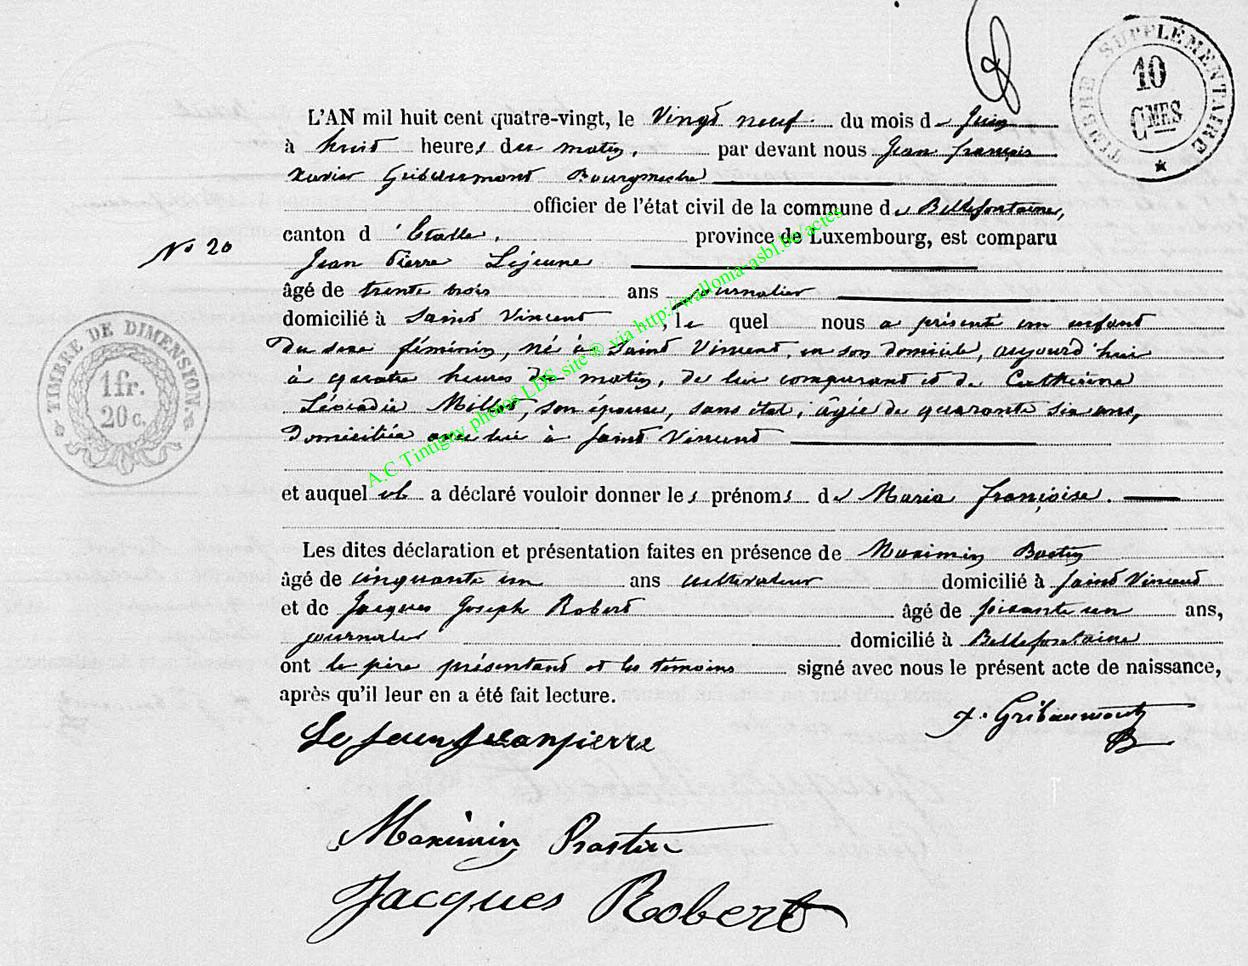 TIMBRE SUPPLÉMENTAIRE
10
CMES
L'AN mil huit cent quatre-vingt, le Vingt neuf du mois de Juin
à huit heures du matin, par devant nous Jean françois
Xavier Gribaumont Bourgmestre
officier de l'état civil de la commune de Bellefontaine,
canton d'Etalle, province de Luxembourg, est comparu
No 20
Jean Pierre Lejeune
âgé de trente trois ans journalier
domicilié à Saint Vincent, le quel nous a présenté un enfant
du sexe féminin, né à Saint Vincent, en son domicile, aujourd'hui
à quatre heures du matin, de lui comparant et de Catherine
Léocadie Millet, son épouse, sans état, âgée de quarante six ans,
domiciliée avec lui à Saint Vincent
TIMBRE DE DIMENSION.
1 fr.
20 c.
A.C Tintigny photos LDS site ® via http://wallonia-asbl.be/actes
et auquel il a déclaré vouloir donner les prénoms de Maria françoise.
Les dites déclaration et présentation faites en présence de Maximin Bastin
âgé de cinquante un ans cultivateur domicilié à Saint Vincent
et de Jacques Joseph Robert âgé de soixante un ans,
journalier domicilié à Bellefontaine
ont le père présentant et les témoins signé avec nous le présent acte de naissance,
après qu'il leur en a été fait lecture.
x. Gribaumont
Le Jeune Jeanpierre
Maximin Bastin
Jacques Robert